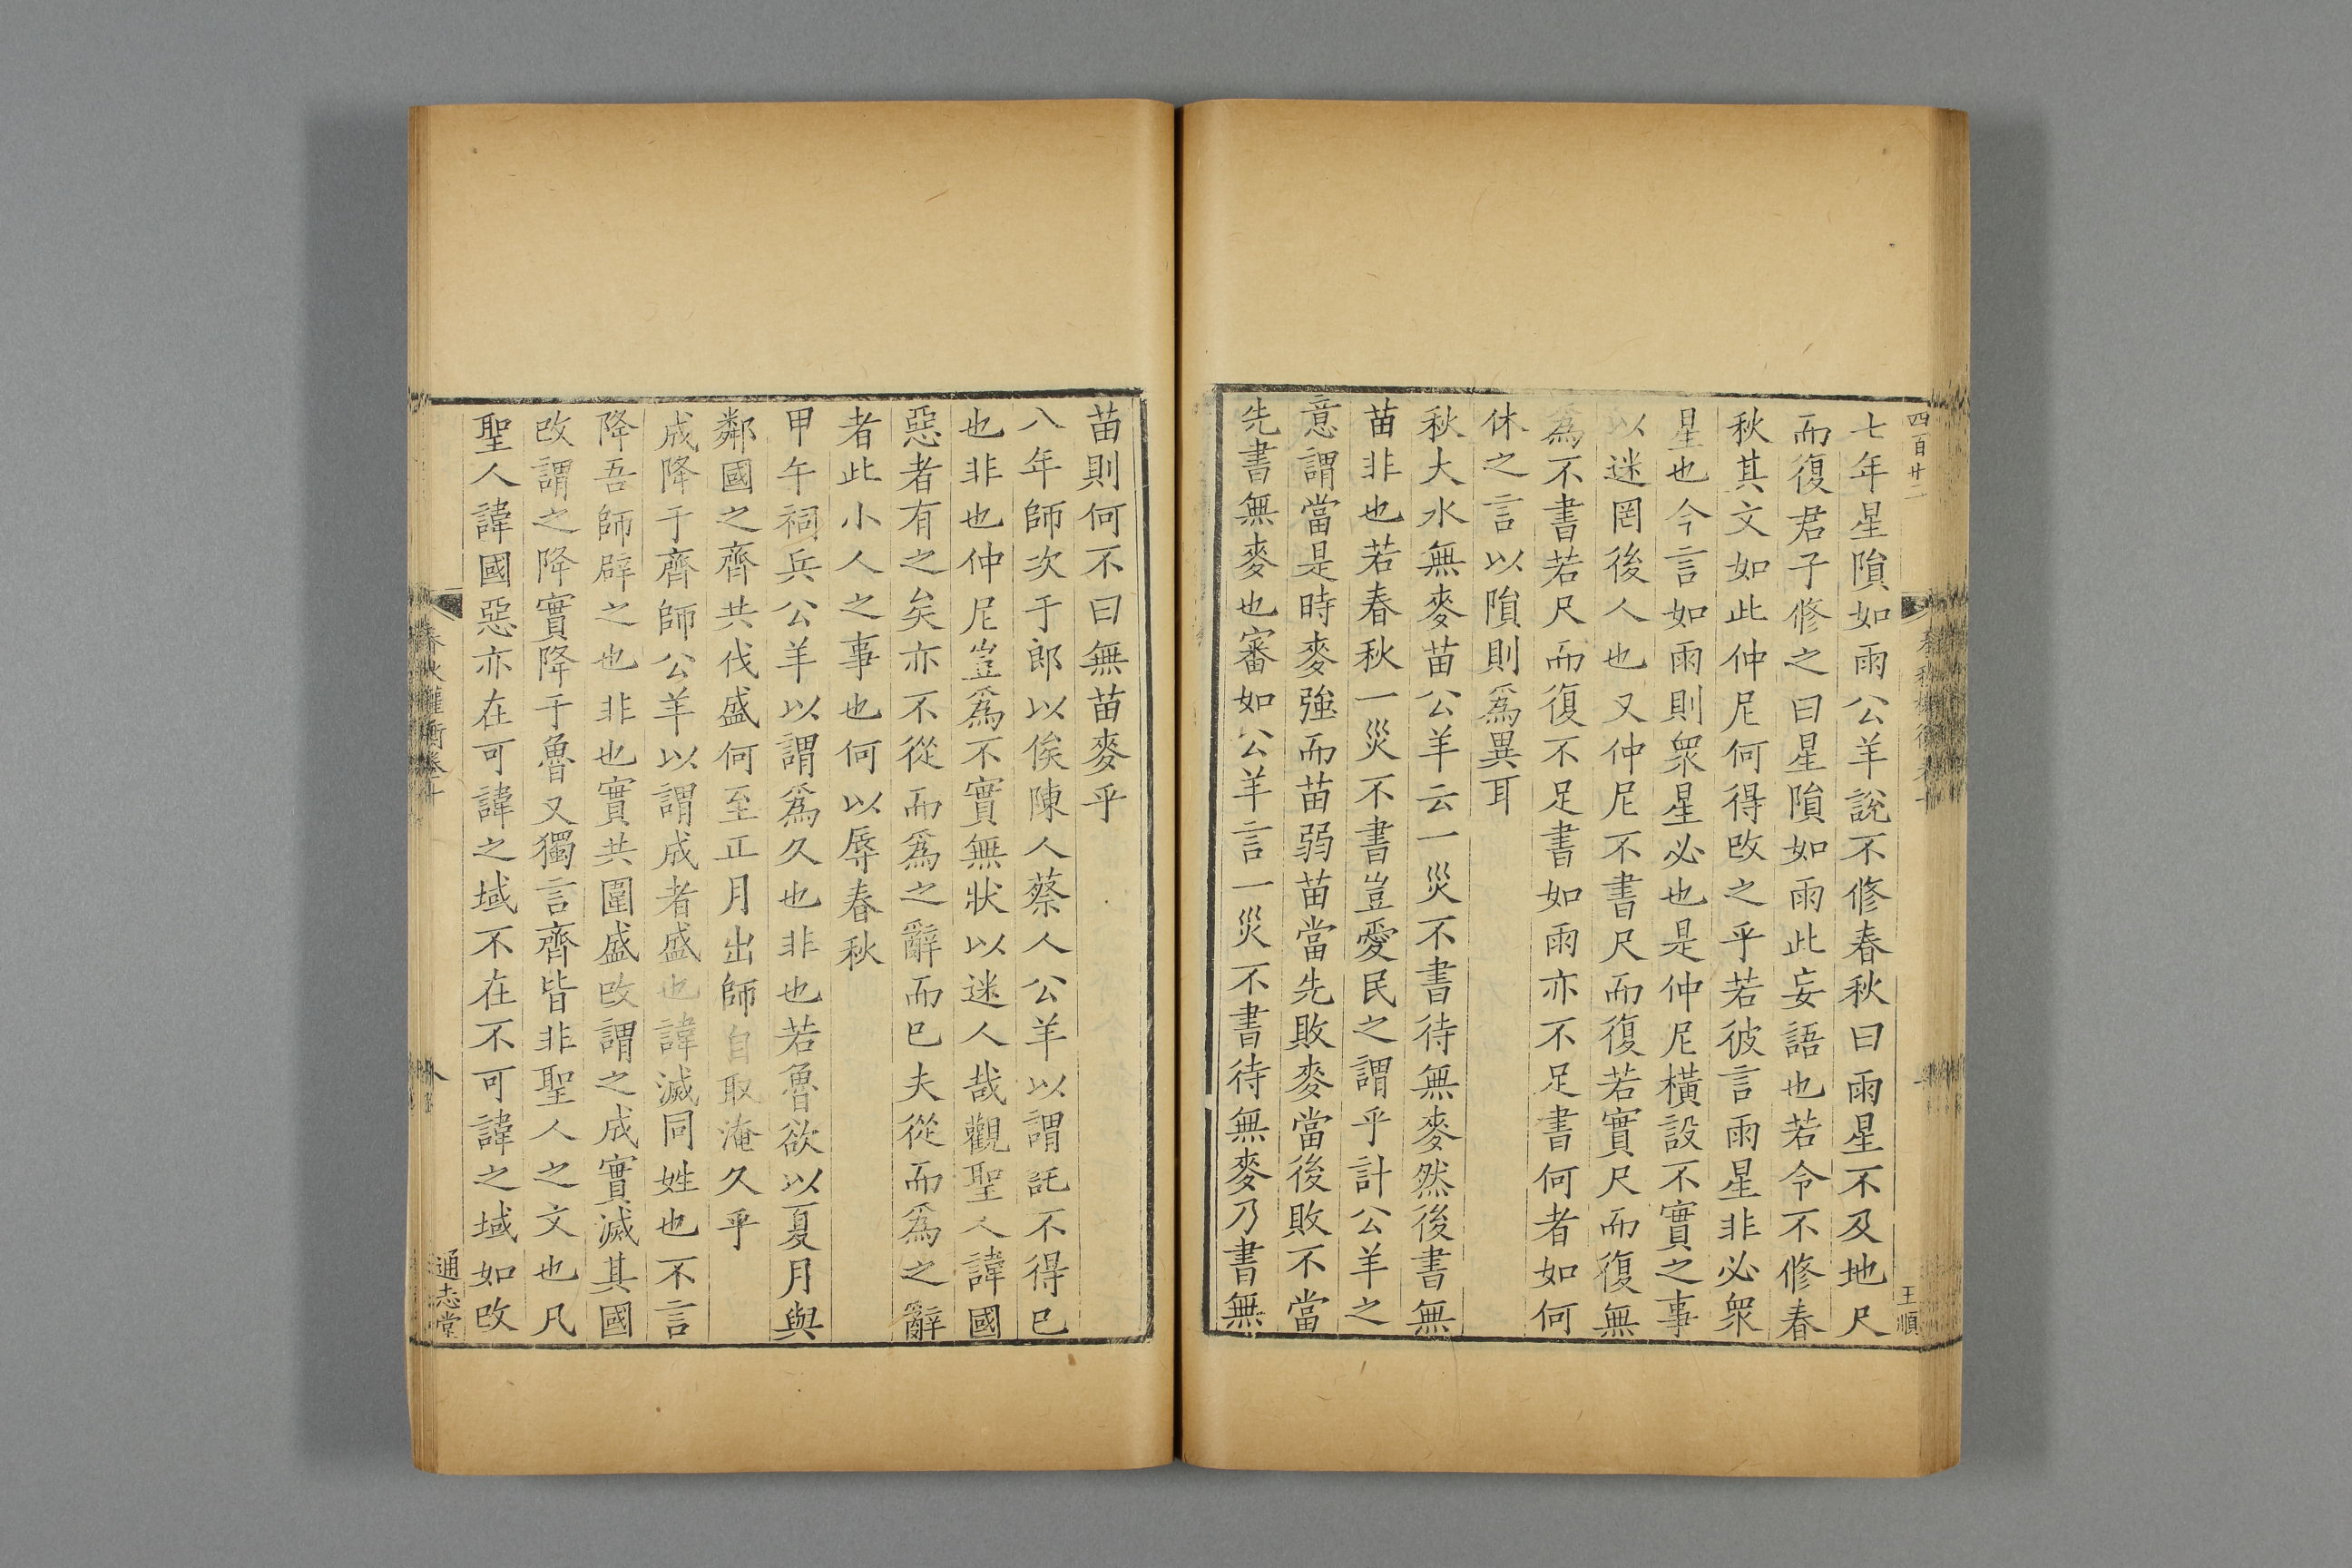 四百廿二
春秋權衡卷十
王順
七年星隕如雨公羊說不修春秋曰雨星不及地尺
而復君子修之曰星隕如雨此妄語也若令不修春
秋其文如此仲尼何得改之乎若彼言雨星非必眾
星也今言如雨則眾星必也是仲尼橫設不實之事
以迷罔後人也又仲尼不書尺而復若實尺而復無
為不書若尺而復不足書如雨亦不足書何者如何
休之言以隕則爲異耳
秋大水無麥苗公羊云一災不書待無麥然後書無
苗非也若春秋一災不書豈愛民之謂乎計公羊之
意謂當是時麥強而苗弱苗當先敗麥當後敗不當
先書無麥也審如公羊言一災不書待無麥乃書無
苗則何不曰無苗麥乎
八年師次于郎以俟陳人蔡人公羊以謂託不得已
也非也仲尼豈爲不實無狀以迷人哉觀聖人諱國
惡者有之矣亦不從而爲之辭而已夫從而爲之辭
者此小人之事也何以辱春秋
甲午祠兵公羊以謂爲久也非也若魯欲以夏月與
鄰國之齊共伐盛何至正月出師自取淹久乎
成降于齊師公羊以謂成者盛也諱滅同姓也不言
降吾師辟之也非也實共圍盛改謂之成實滅其國
改謂之降實降于魯又獨言齊皆非聖人之文也凡
聖人諱國惡亦在可諱之域不在不可諱之域如改
春秋權衡卷十
八
通志堂